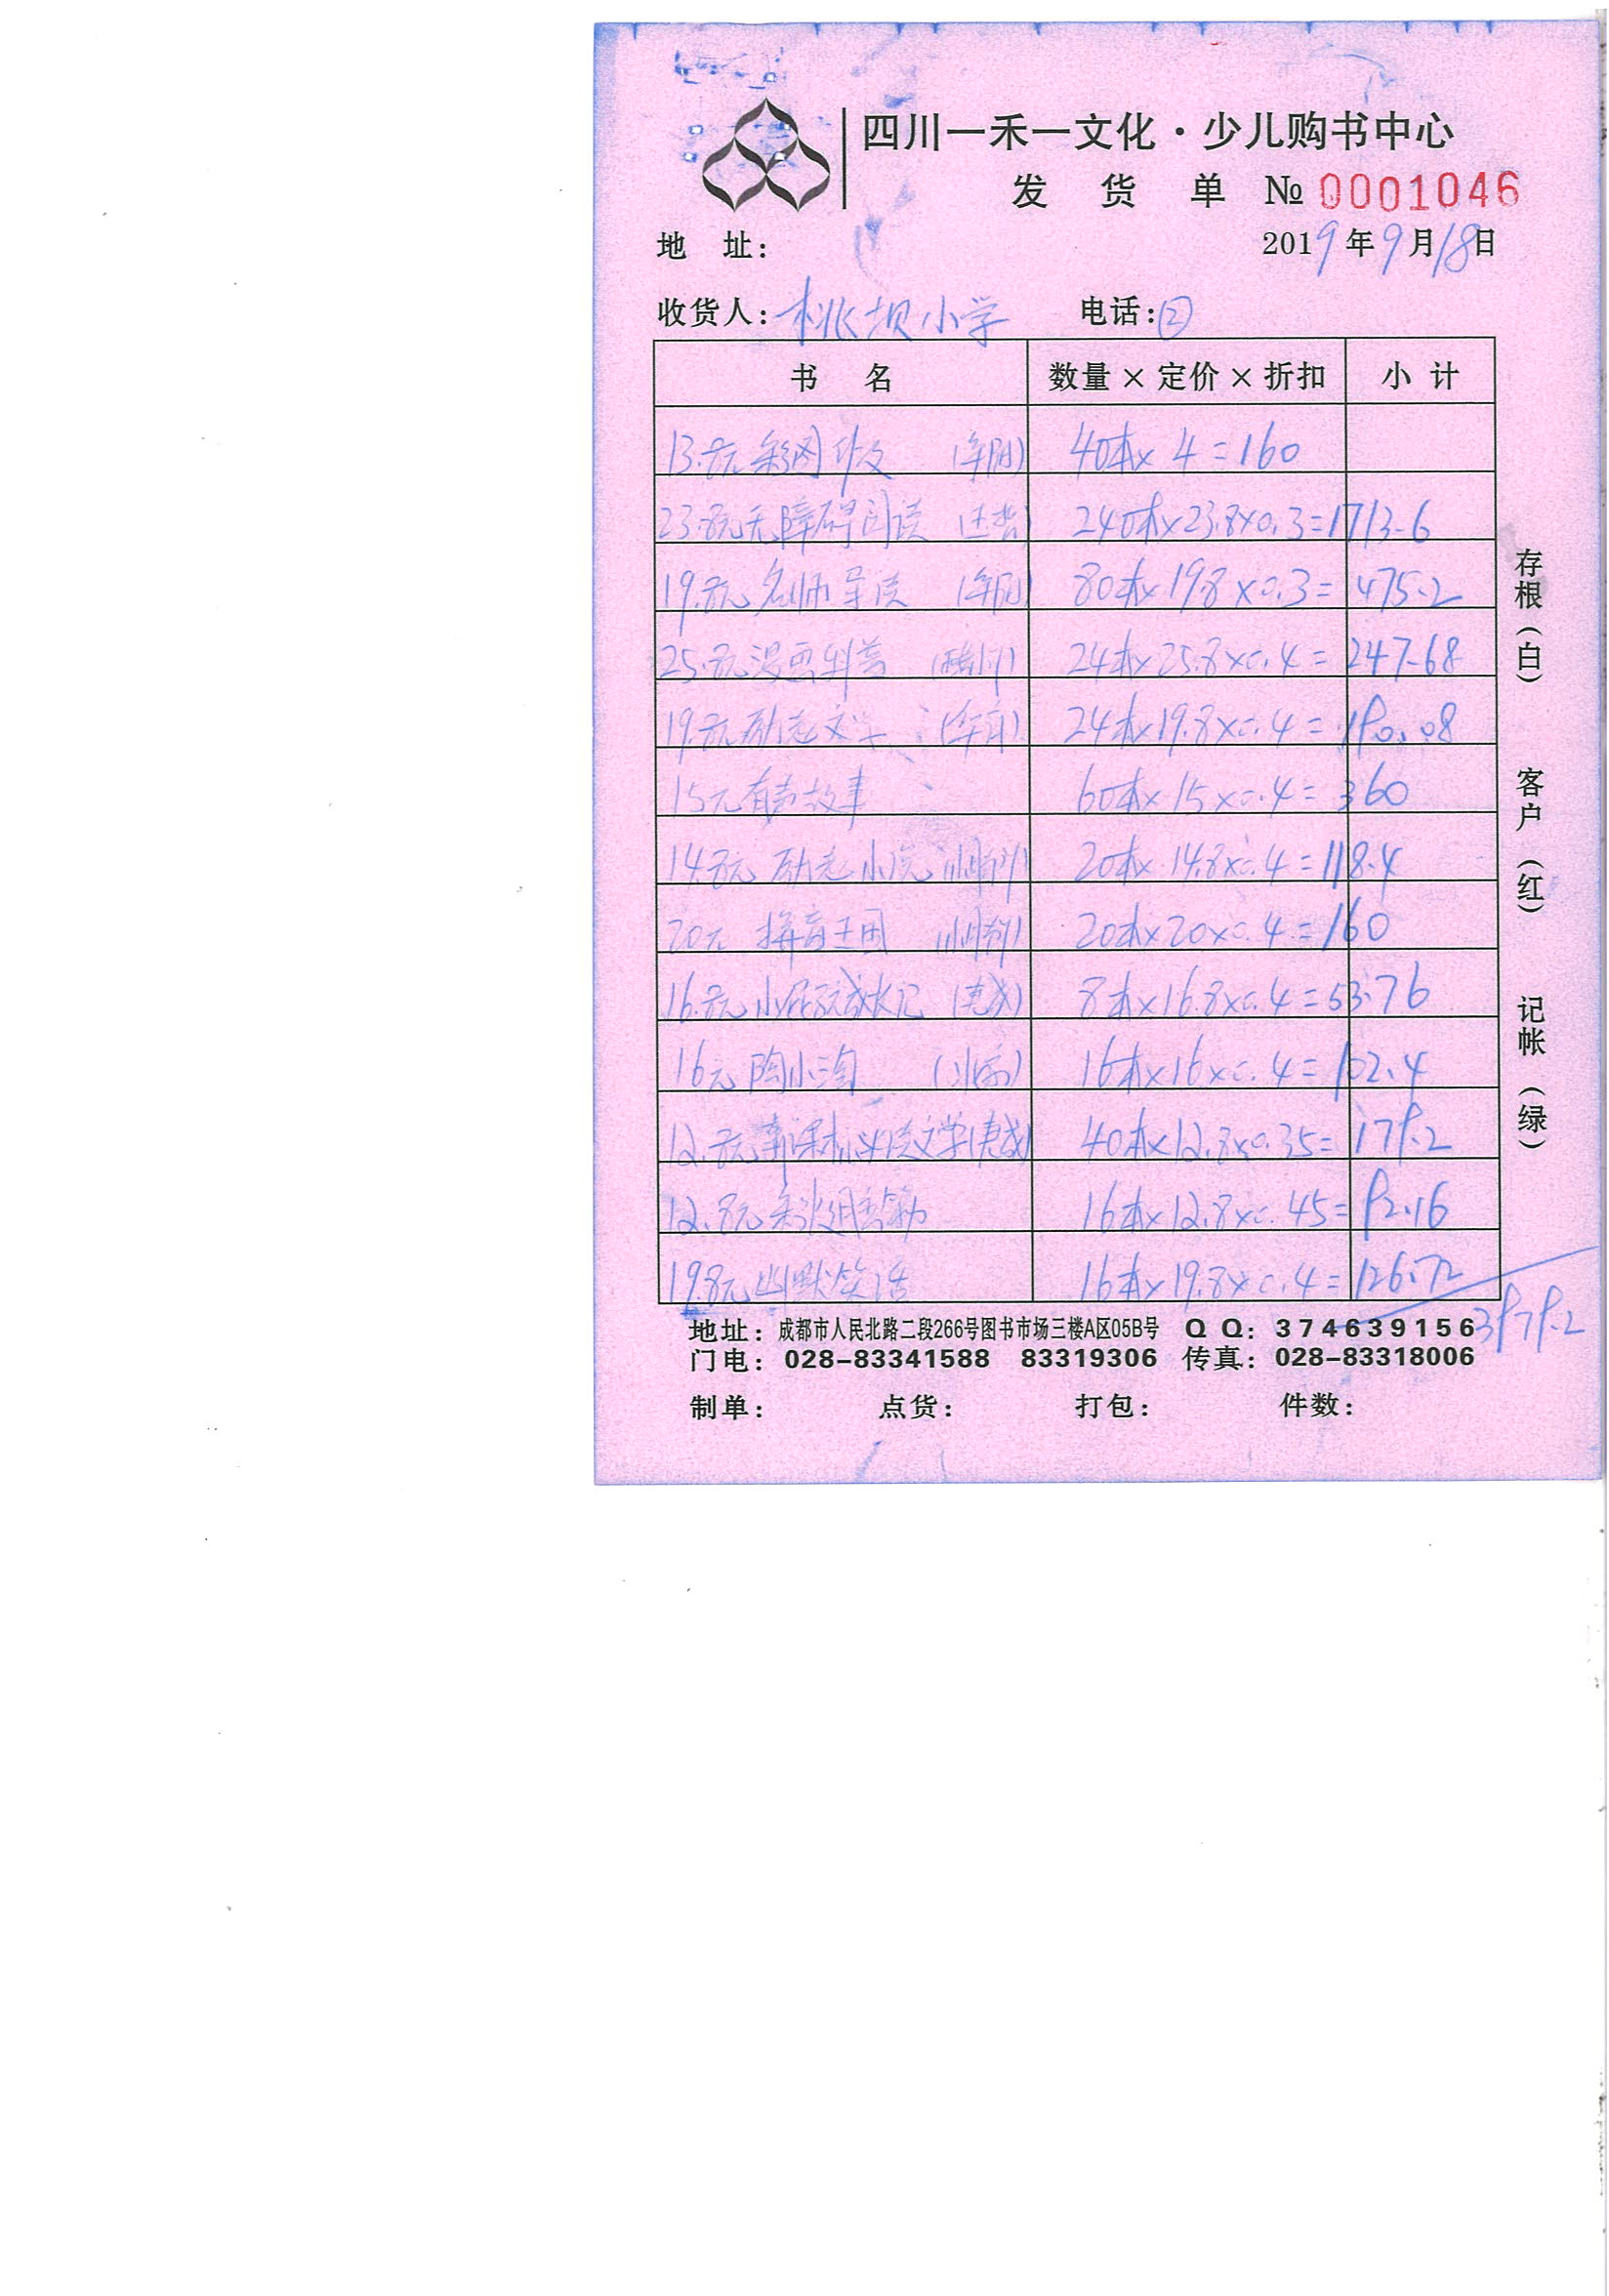 四川一禾一文化·少儿购书中心
发 货 单 № 0001046
地 址： 2019年9月18日
收货人：桃坝小学 电话：②
书 名 数量×定价×折扣 小 计
13.8元彩图 40本×4=160
23.8元无障碍阅读 240本×23.8×0.3=1713.6
19.8元名师导读 80本×19.8×0.3=475.2
25.8元漫画科普 24本×25.8×0.4=247.68
19.8元励志文学 24本×19.8×0.4=190.08
15元有声故事 60本×15×0.4=360
14.8元励志小说 20本×14.8×0.4=118.4
20元拼音王国 20本×20×0.4=160
16.8元小屁孩成长记 8本×16.8×0.4=53.76
16元陶小淘 16本×16×0.4=102.4
12.8元新课标必读文学 40本×12.8×0.35=179.2
12.8元 16本×12.8×0.45=92.16
19.8元幽默笑话 16本×19.8×0.4=126.72
3979.2
存根（白） 客户（红） 记帐（绿）
地址：成都市人民北路二段266号图书市场三楼A区05B号 QQ：374639156
门电：028-83341588 83319306 传真：028-83318006
制单： 点货： 打包： 件数：